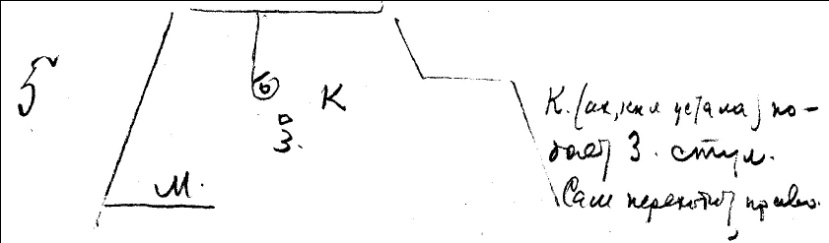 б
К
З.
М.
К. (ах, как устала) по-
дает З. стул.
Сам переходит